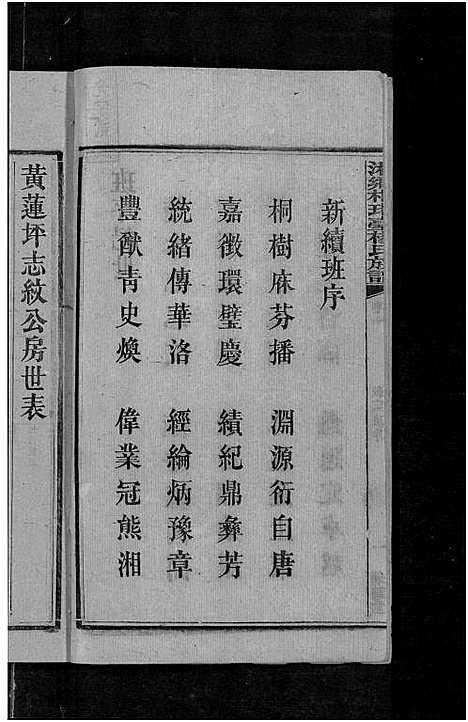 新續班序
桐樹庥芬播 淵源衍自唐
嘉徵環璧慶 績紀鼎彝芳
統緒傳華洛 經綸炳豫章
豐猷靑史煥 偉業冠熊湘
黃蓮坪志紋公房世表